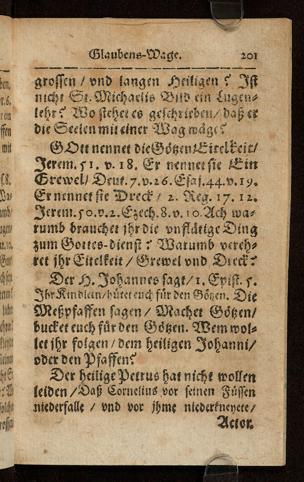 Glaubens-Wage. 201
grossen / vnd langen Heiligen? Ist
nicht St. Michaelis Bild ein Lugen-
lehr? Wo stehet es geschrieben / daß er
die Seelen mit einer Wag wäge?
GOtt nennet die Götzen / Eitelkeit /
Jerem. 51. v. 18. Er nennet sie / Ein
Grewel / Deut. 7. v. 26. Esaj. 44. v. 19.
Er nennet sie Dreck / 2. Reg. 17. 12.
Jerem. 50. v. 2. Ezech. 8. v. 10. Ach wa-
rumb brauchet jhr die vnflätige Ding
zum Gottes-dienst? Warumb vereh-
ret jhr Eitelkeit / Grewel vnd Dreck?
Der H. Johannes sagt / 1. Epist. 5.
Jhr Kindlein / hütet euch für den Götzen. Die
Meßpfaffen sagen / Machet Götzen /
bucket euch für den Götzen. Wem wol-
let jhr folgen / dem heiligen Johanni /
oder den Pfaffen?
Der heilige Petrus hat nicht wollen
leiden / Daß Cornelius vor seinen Füssen
niederfalle / vnd vor jhme niederkneyete /
Actor.